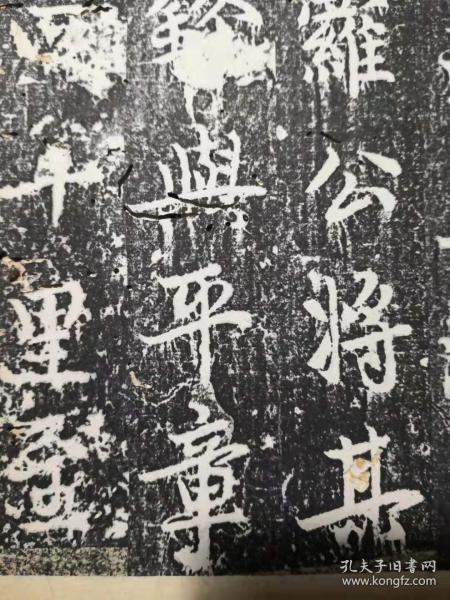 羅公將其
與平章
千里
孔夫子旧书网
www.kongfz.com